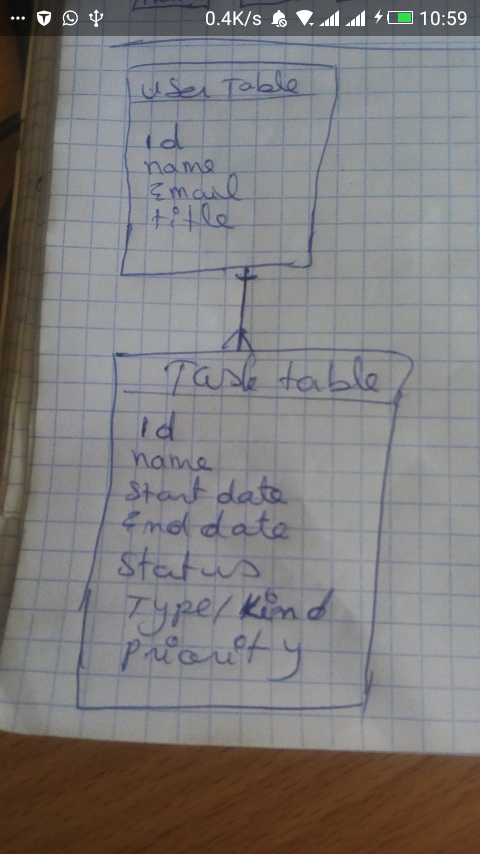 0.4K/s 10:59
User Table
id
name
Email
title
Task table
id
name
Start date
End date
Status
Type/Kind
Priority